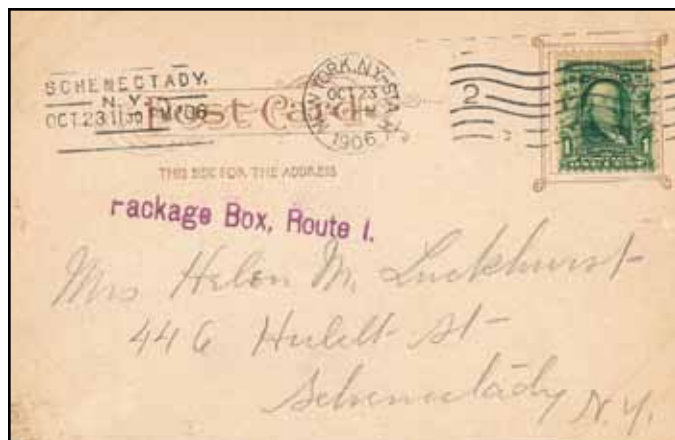 SCHENECTADY,
N.Y.
OCT.23 11 30 PM '06
Post Card
NEW YORK, N.Y. STA.
OCT 23
1906
2
1 1
THIS SIDE FOR THE ADDRESS
Package Box, Route 1.
Mrs Helen M. Luckhurst
446 Hulett St
Schenectady N.Y.